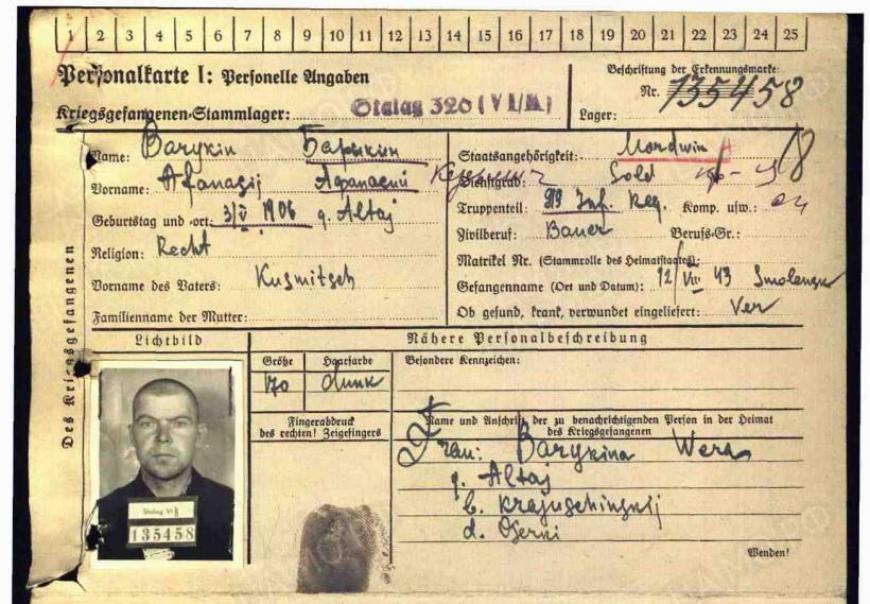 1 2 3 4 5 6 7 8 9 10 11 12 13 14 15 16 17 18 19 20 21 22 23 24 25
Personalkarte I: Personelle Angaben
Beschriftung der Erkennungsmarke
Nr. 135458
Kriegsgefangenen-Stammlager: Stalag 326 (VI/K)
Lager:
Des Kriegsgefangenen
Name: Barykin Барыкин
Vorname: Afanasij Афанасий Кузьмич
Geburtstag und -ort: 3/V 1906 g. Altaj
Religion: Recht
Vorname des Vaters: Kusmitsch
Familienname der Mutter:
Staatsangehörigkeit: Mordwin
18
Dienstgrad: Sold
Truppenteil: 919 Inf. Reg. Komp. usw.:
Zivilberuf: Bauer Berufs-Gr.:
Matrikel Nr. (Stammrolle des Heimatstaates):
Gefangennahme (Ort und Datum): 12/VIII 43 Smolensk
Ob gesund, krank, verwundet eingeliefert: Ver
Lichtbild
Nähere Personalbeschreibung
Größe Haarfarbe Besondere Kennzeichen:
170 dunk
Fingerabdruck
des rechten! Zeigefingers
Name und Anschrift der zu benachrichtigenden Person in der Heimat
des Kriegsgefangenen
Frau: Barykina Wera
g. Altaj
b. Krajuschinskij
d. Oserni
Stalag VI
135458
Wenden!